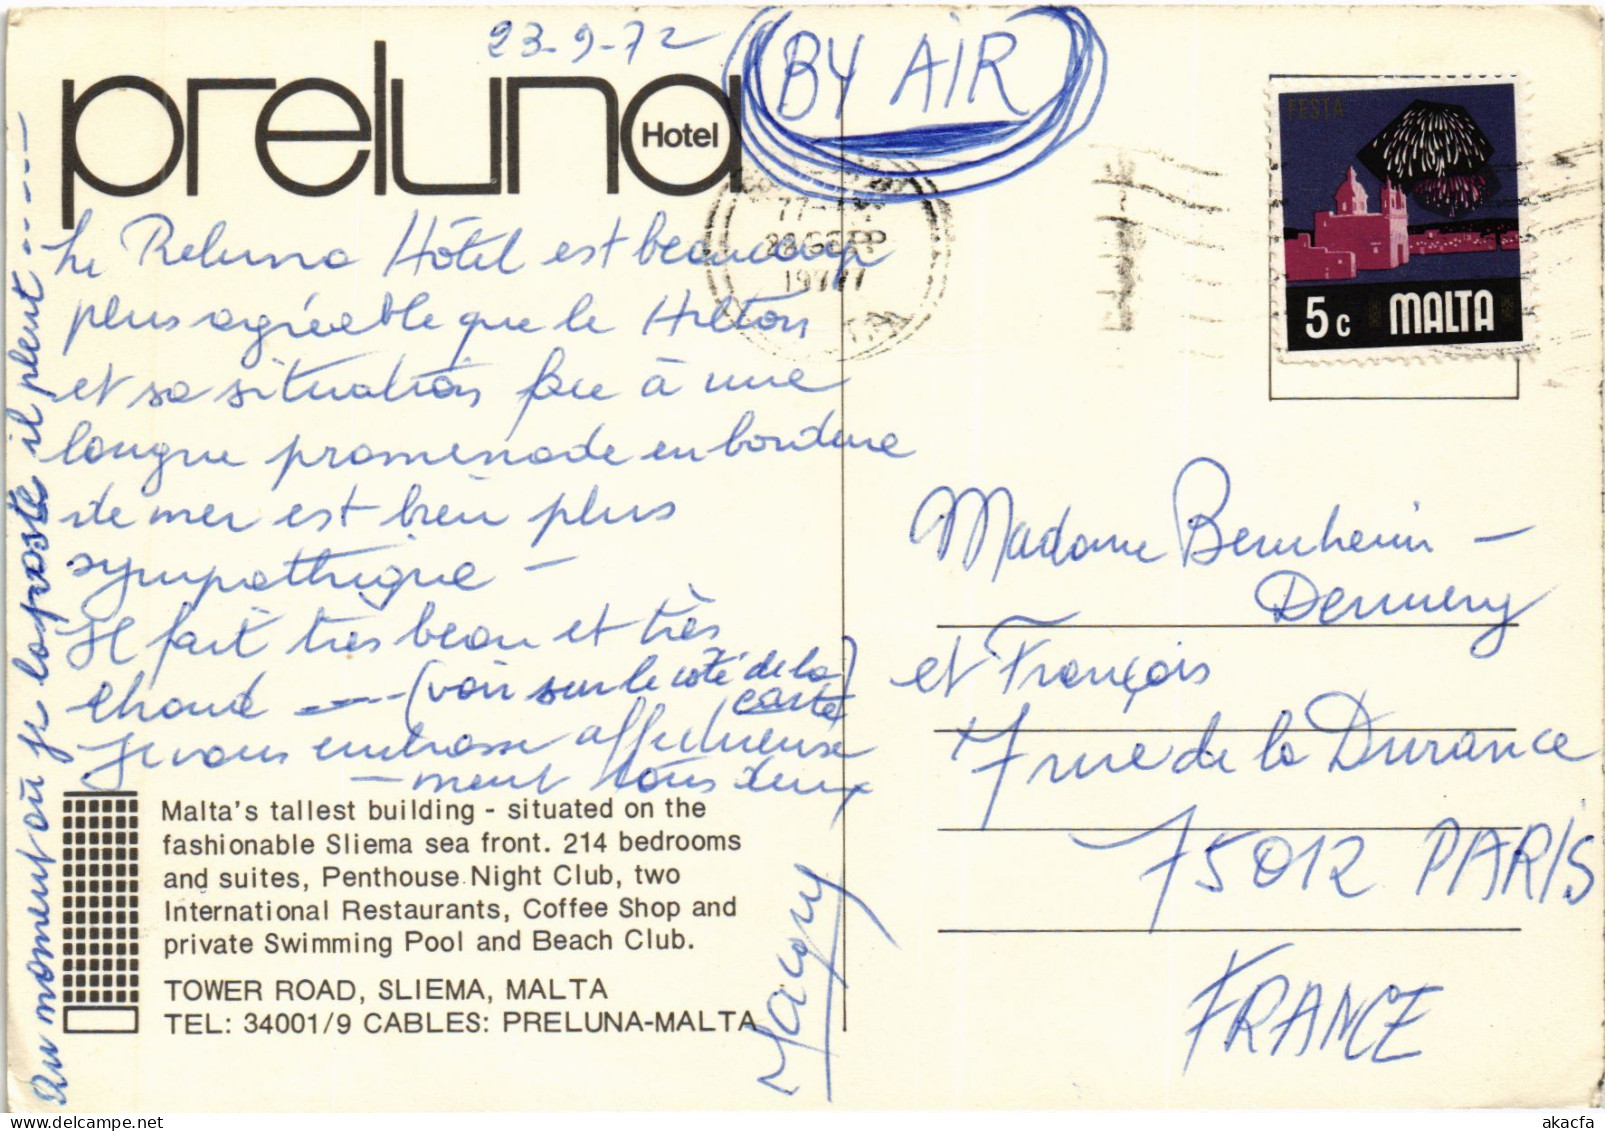 23-9-72
BY AIR
preluna
Hotel
FESTA
5c MALTA
Le Preluna Hôtel est beaucoup
plus agréable que le Hilton
et sa situation face à une
longue promenade en bordure
de mer est bien plus
sympathique -
Il fait très beau et très
chaud ---- (voir sur le côté de la
carte)
Je vous embrasse affectueuse
- ment tous deux
Magny
Au moment où je la poste il pleut .....
Malta's tallest building - situated on the
fashionable Sliema sea front. 214 bedrooms
and suites, Penthouse Night Club, two
International Restaurants, Coffee Shop and
private Swimming Pool and Beach Club.
TOWER ROAD, SLIEMA, MALTA
TEL: 34001/9 CABLES: PRELUNA-MALTA
Madame Bernheim -
Dennery
et François
7 rue de la Durance
75012 PARIS
FRANCE
akacfa